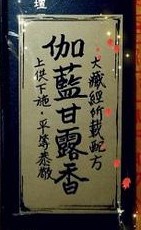 壇
大藏經所載配方
伽藍甘露香
上供下施．平等恭敬